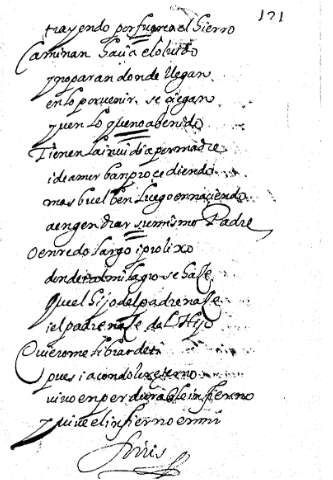 121
trayendo por fuerça el hierro
Caminan haçia el olvido
y no paran donde llegan
en lo porvenir se çiegan
y ven lo que no a benido
Tienen la invidia por madre
i de amor ban proçediendo
mas buelben luego en naçiendo
a engendrar su mismo Padre
O enredo largo i prolixo
donde milagro se halle
que el hijo del padre nasce
i el padre nasce del Hijo
Quierome librar de ti
pues ia con dolor eterno
vivo en perdurable infierno
y vive el infierno en mi
finis